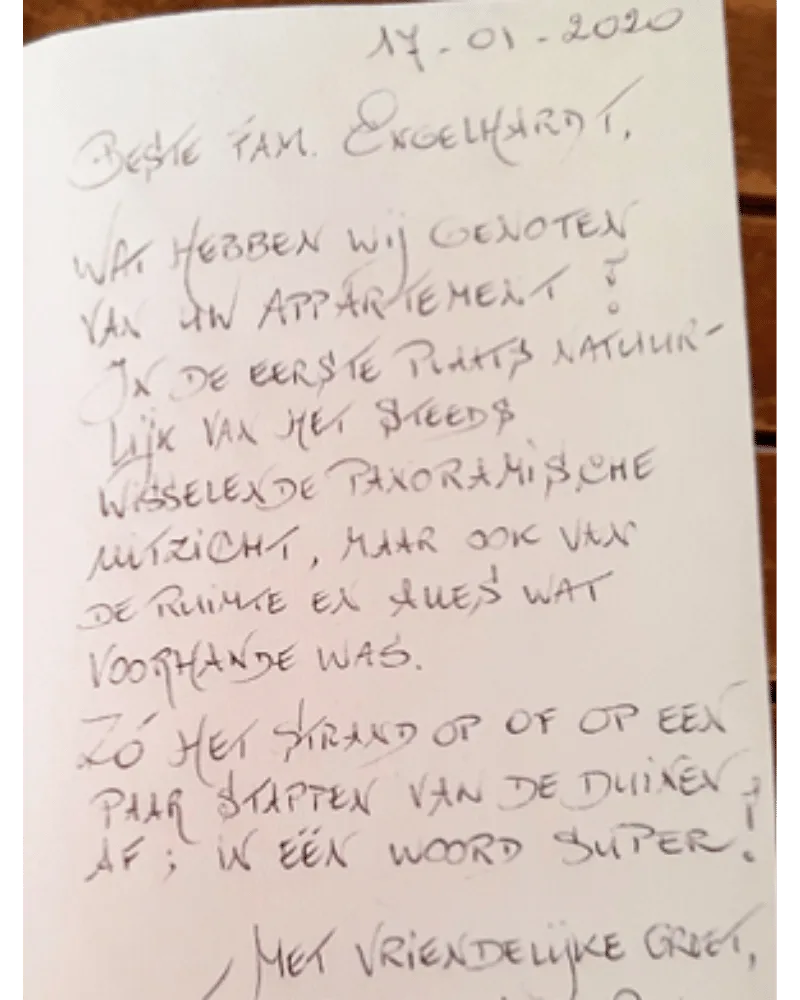 17-01-2020
BESTE FAM. ENGELHARDT,
WAT HEBBEN WIJ GENOTEN
VAN UW APPARTEMENT!
IN DE EERSTE PLAATS NATUUR-
LIJK VAN HET STEEDS
WISSELENDE PANORAMISCHE
UITZICHT, MAAR OOK VAN
DE RUIMTE EN ALLES WAT
VOORHANDE WAS.
ZÓ HET STRAND OP OF OP EEN
PAAR STAPPEN VAN DE DUINEN
AF; IN EËN WOORD SUPER!
MET VRIENDELIJKE GROET,